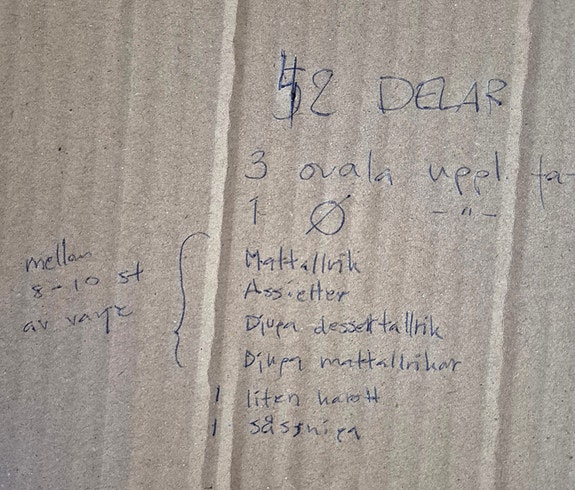 42 DELAR
3 ovala uppl. fa
1 Ø - " -
mellan
8-10 st
av varje
Mattallrik
Assietter
Djupa desserttallrik
Djupa mattallrikar
1 liten karott
1 såssnipa